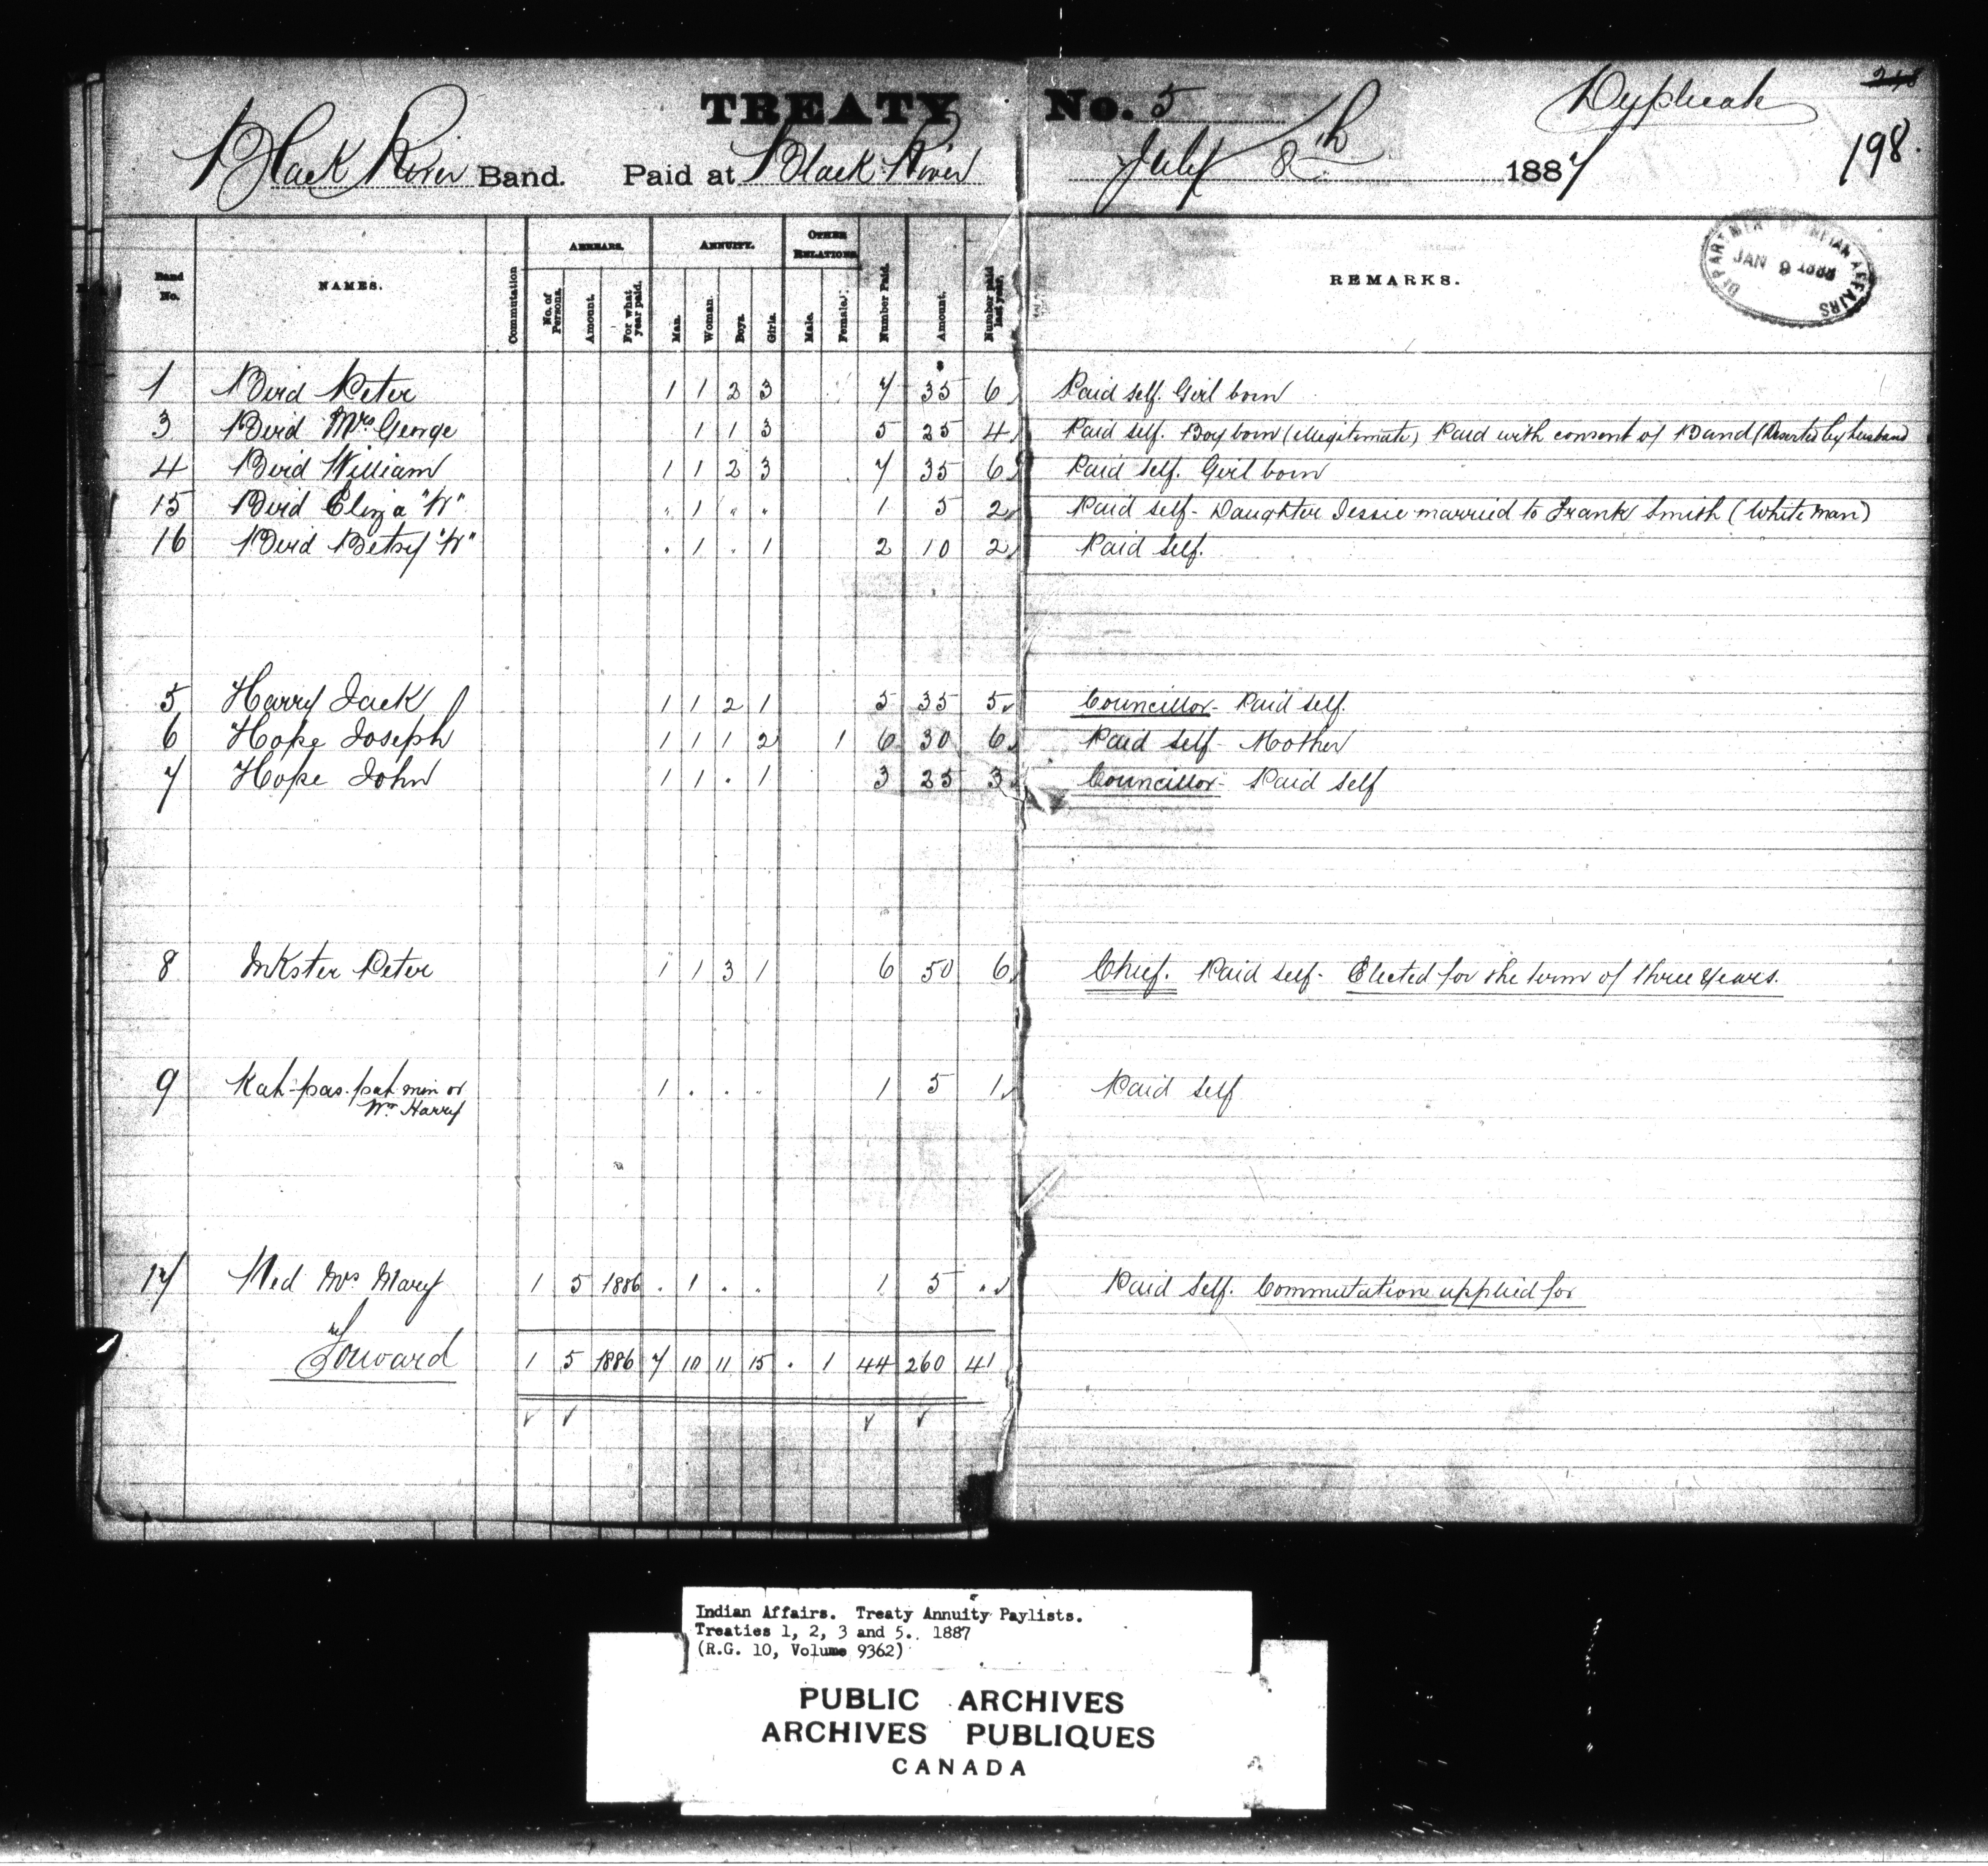 TREATY No. 5 Duplicate
198.
Black River Band. Paid at Black River July 8th 1887
DEPARTMENT OF INDIAN AFFAIRS
JAN 9 1888
Band No. NAMES. Commutation ARREARS. No. of Persons. Amount. For what year paid. ANNUITY. Man. Woman. Boys. Girls. OTHER RELATIONS. Male. Female. Number Paid. Amount. Number paid last year. REMARKS.
1 Bird Peter 1 1 2 3 7 35 6 Paid self. Girl born
3 Bird Mrs George 1 1 3 5 25 4 Paid self. Boy born (illegitimate) Paid with consent of Band (Deserted by husband
4 Bird William 1 1 2 3 7 35 6 Paid self. Girl born
15 Bird Eliza "W" " 1 " " 1 5 2 Paid self - Daughter Jessie married to Frank Smith (White man)
16 Bird Betsy "W" . 1 . 1 2 10 2 Paid self.
5 Harry Jack 1 1 2 1 5 35 5 Councillor - Paid self.
6 Hope Joseph 1 1 1 2 1 6 30 6 Paid self - Mother
7 Hope John 1 1 . 1 3 25 3 Councillor - Paid self
8 Inkster Peter 1 1 3 1 6 50 6 Chief. Paid self - Elected for the term of three years.
9 Kah-pas-pah-min or 1 . . . 1 5 1 Paid self
Wm Harry
17 Ned Mrs Mary 1 5 1886 . 1 . . 1 5 . Paid self. Commutation applied for
Forward 1 5 1886 7 10 11 15 . 1 44 260 41
Indian Affairs. Treaty Annuity Paylists.
Treaties 1, 2, 3 and 5. 1887
(R.G. 10, Volume 9362)
PUBLIC ARCHIVES
ARCHIVES PUBLIQUES
CANADA